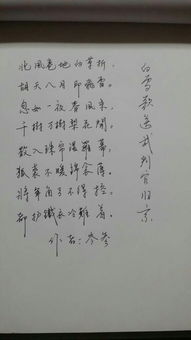 白雪歌送武判官归京
北风卷地白草折,
胡天八月即飞雪.
忽如一夜春风来,
千树万树梨花开.
散入珠帘湿罗幕,
狐裘不暖锦衾薄.
将军角弓不得控,
都护铁衣冷难着.
作者:岑参